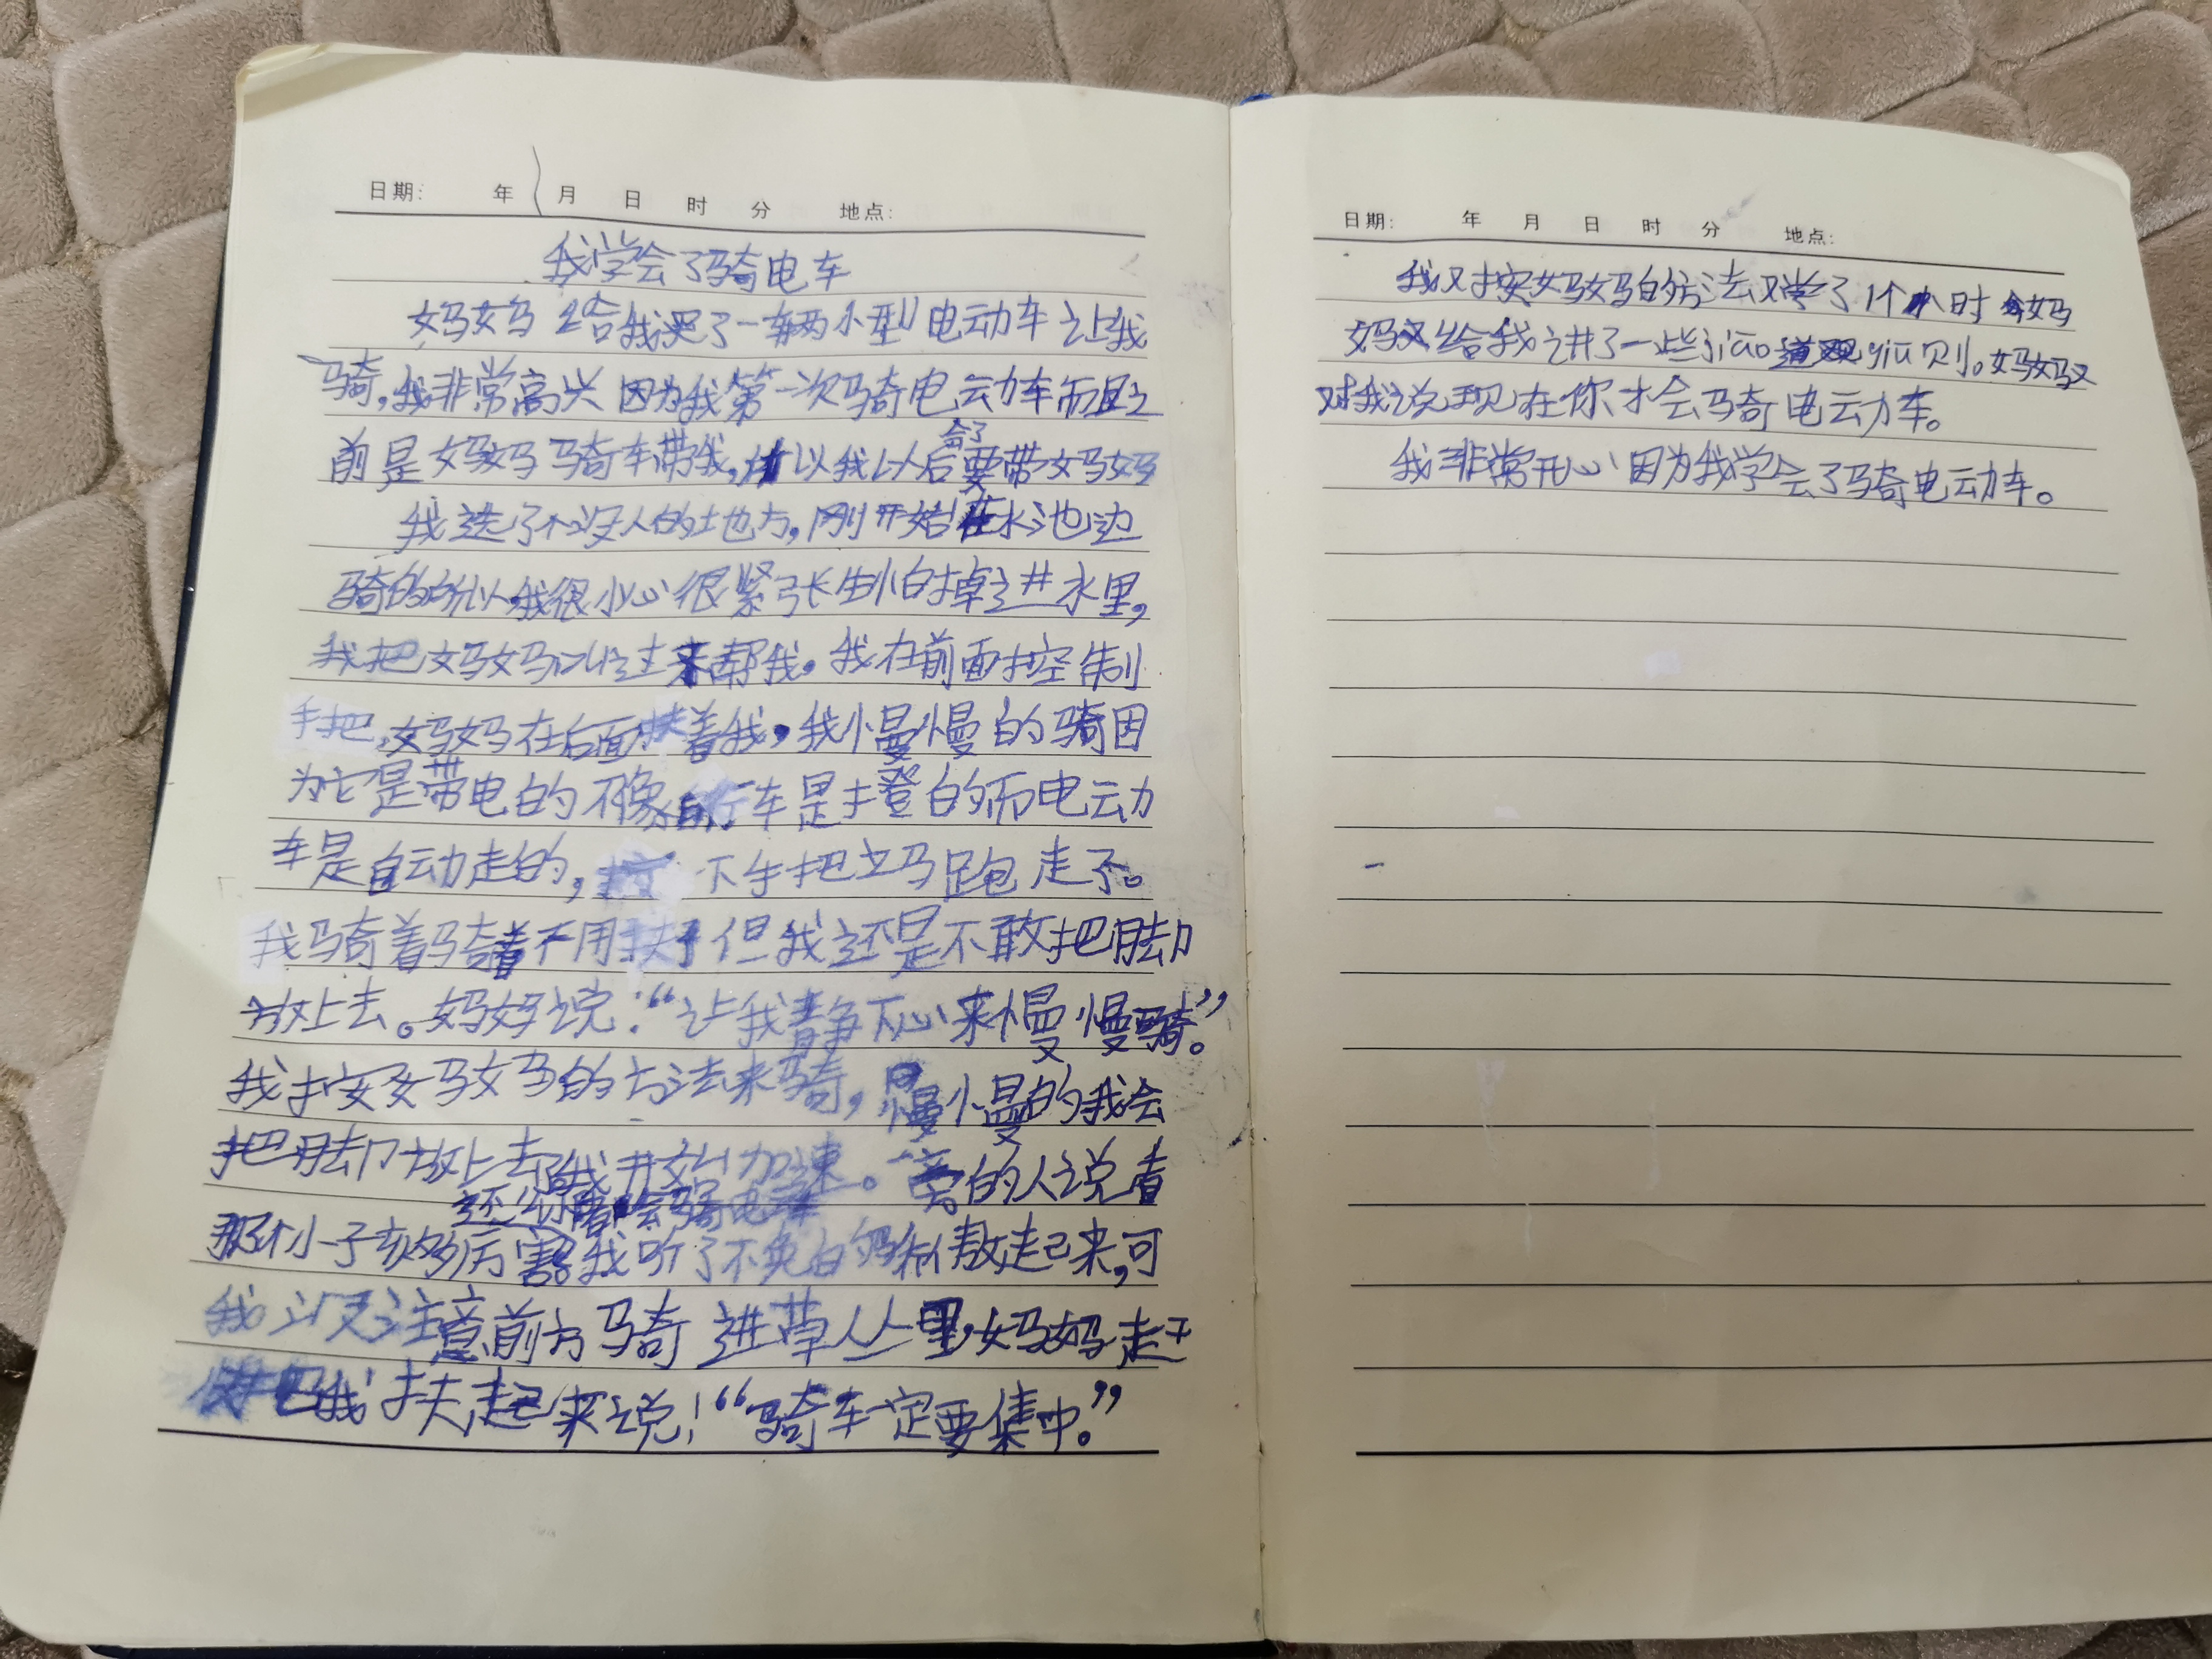 日期： 年 月 日 时 分 地点：
我学会了骑电车
妈妈给我买了一辆小型电动车让我
骑，我非常高兴因为我第一次骑电动车而且之
前是妈妈骑车带我，所以我以后会了要带妈妈
我选了个没人的地方，刚开始在水池边
骑的所以我很小心很紧张生怕掉进水里，
我把妈妈叫过来帮我。我在前面控制
手把，妈妈在后面扶着我，我慢慢的骑因
为它是带电的不像自行车是登的而电动
车是自动走的，下手把立马跑走了。
我骑着骑着不用扶了但我还是不敢把脚
放上去。妈妈说：“让我静下心来慢慢骑。”
我按妈妈的方法来骑，慢慢的我会
把脚放上去了我开始加速。旁的人说看
还会骑电车
那个小子孩多厉害我听了不免自骄傲起来，可
我没注意前方骑进草丛里，妈妈走
把我扶起来说！“骑车一定要集中。”
日期： 年 月 日 时 分 地点：
我又按妈妈的方法又学了1个小时妈
妈又给我讲了一些jiao道yiu则。妈妈又
对我说现在你才会骑电动车。
我非常开心因为我学会了骑电动车。